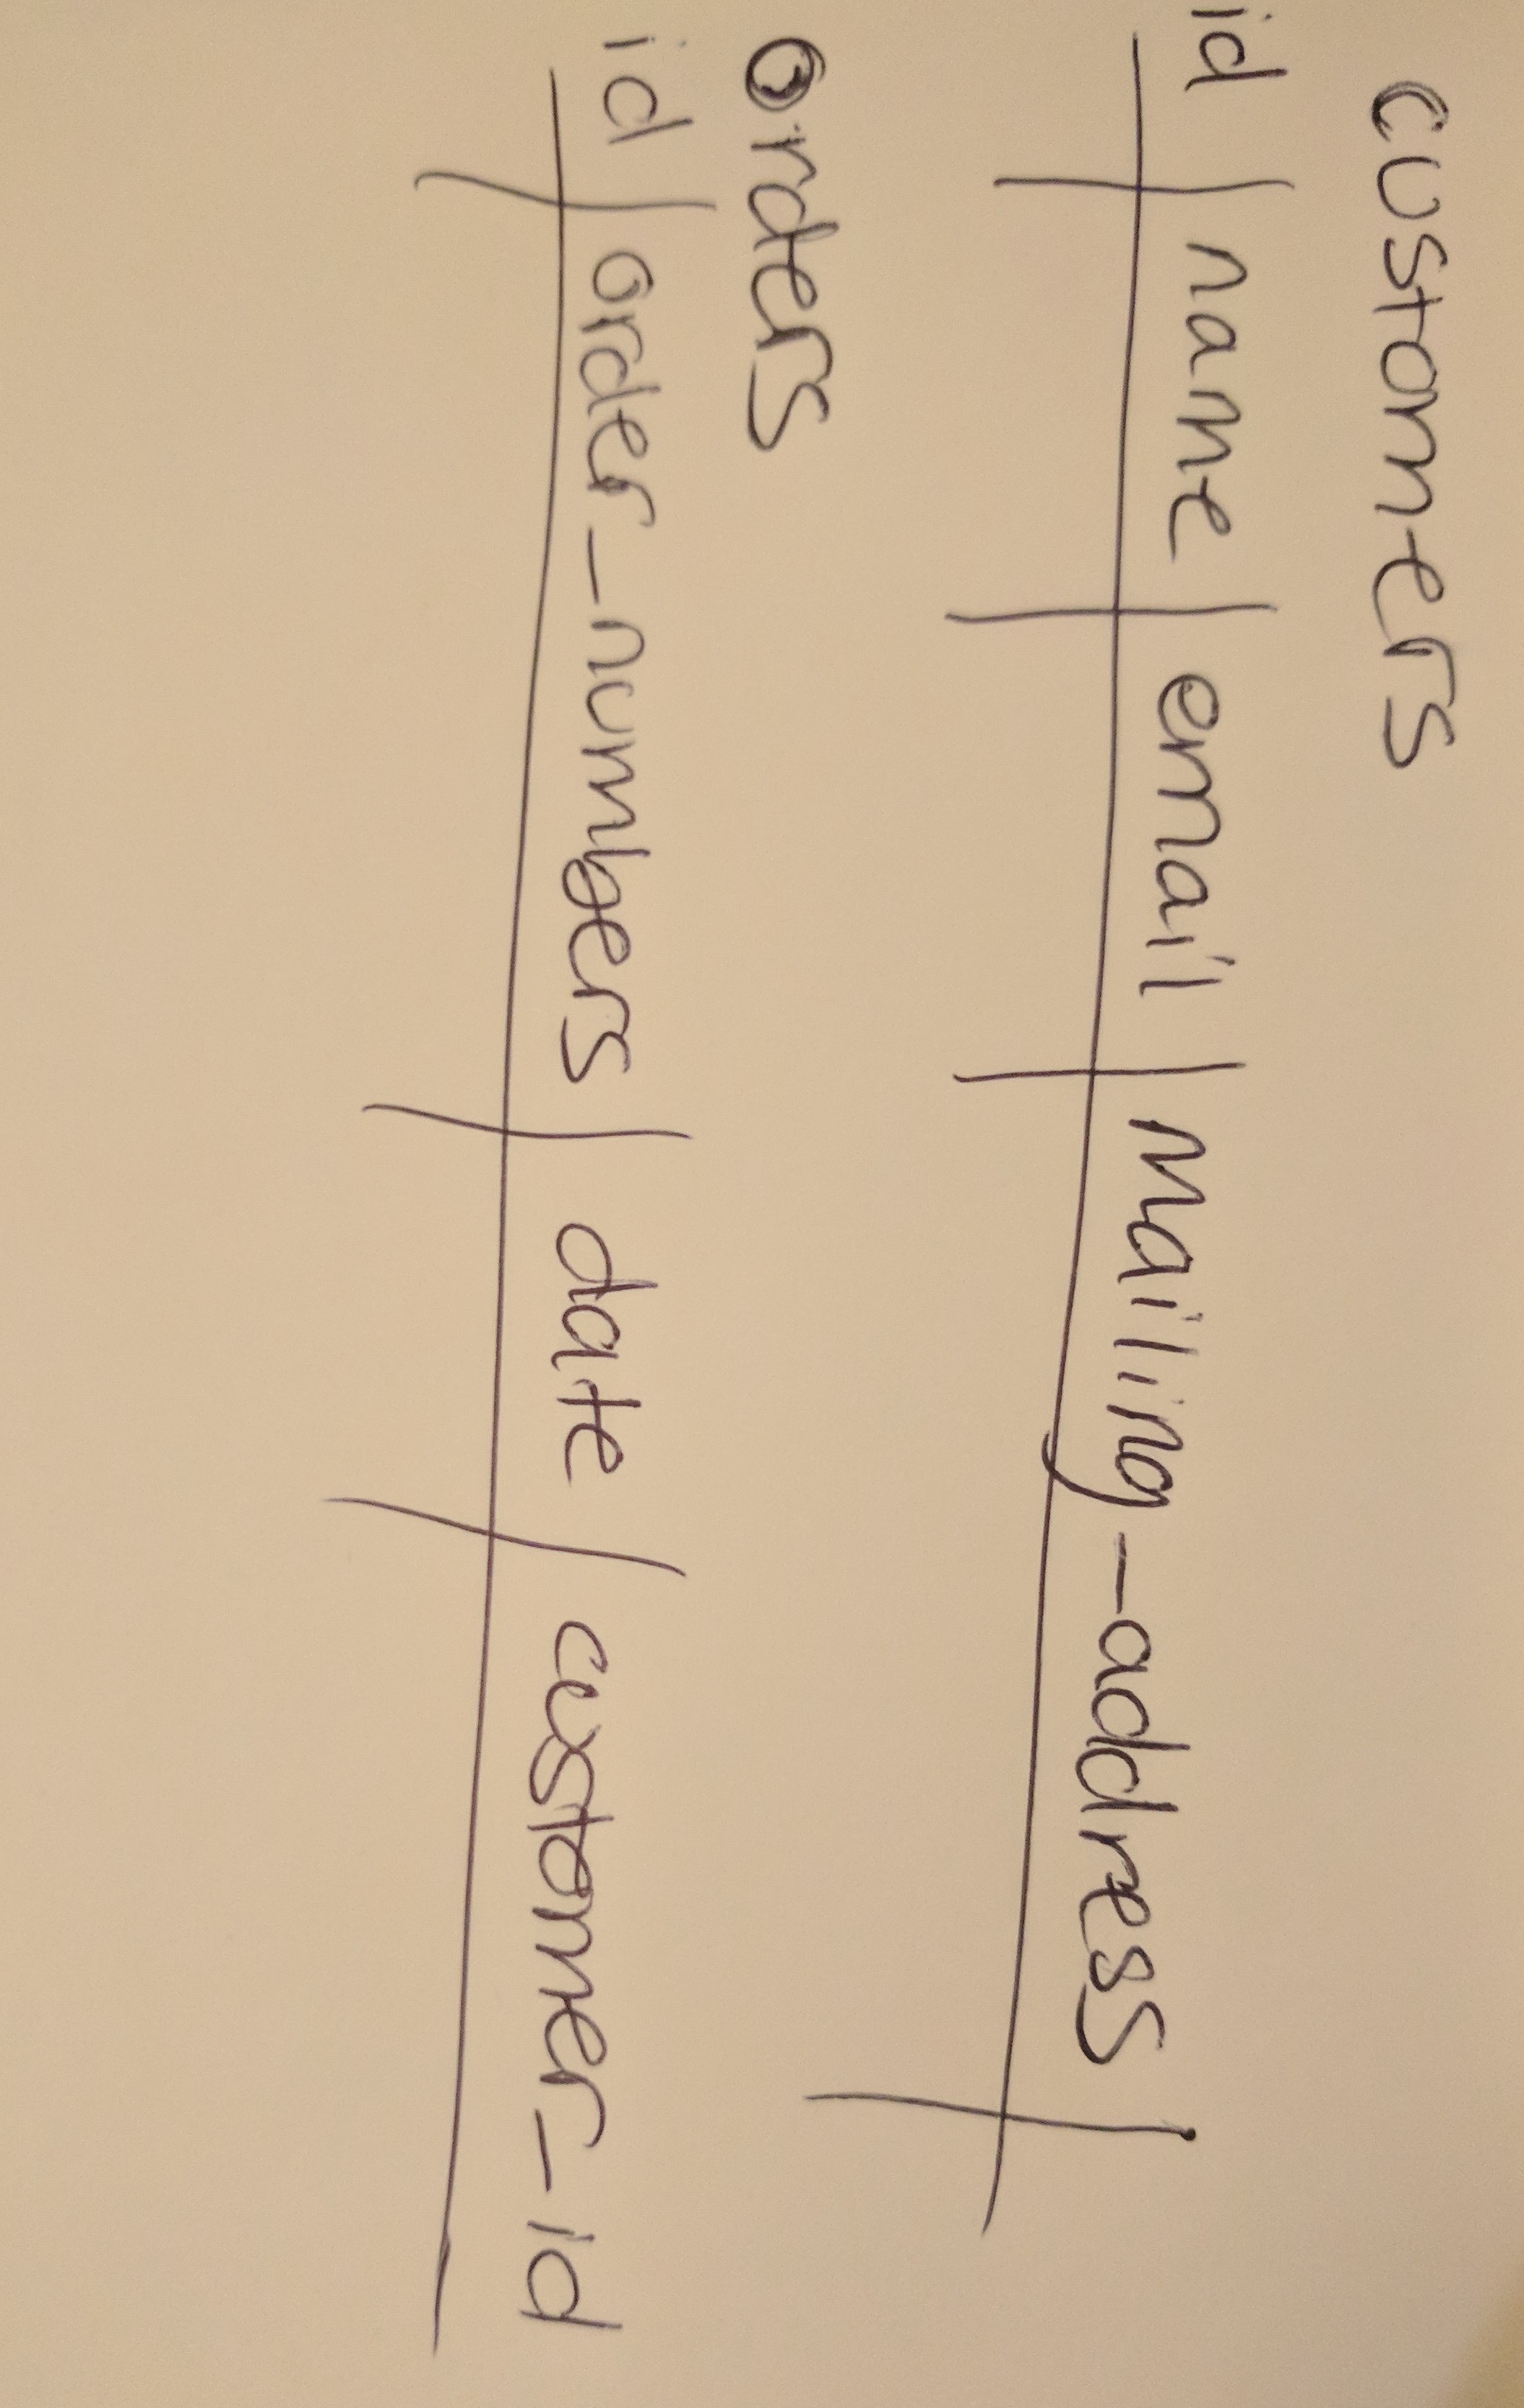 customers
id | name | email | mailing_address |
orders
id | order_numbers | date | customer_id